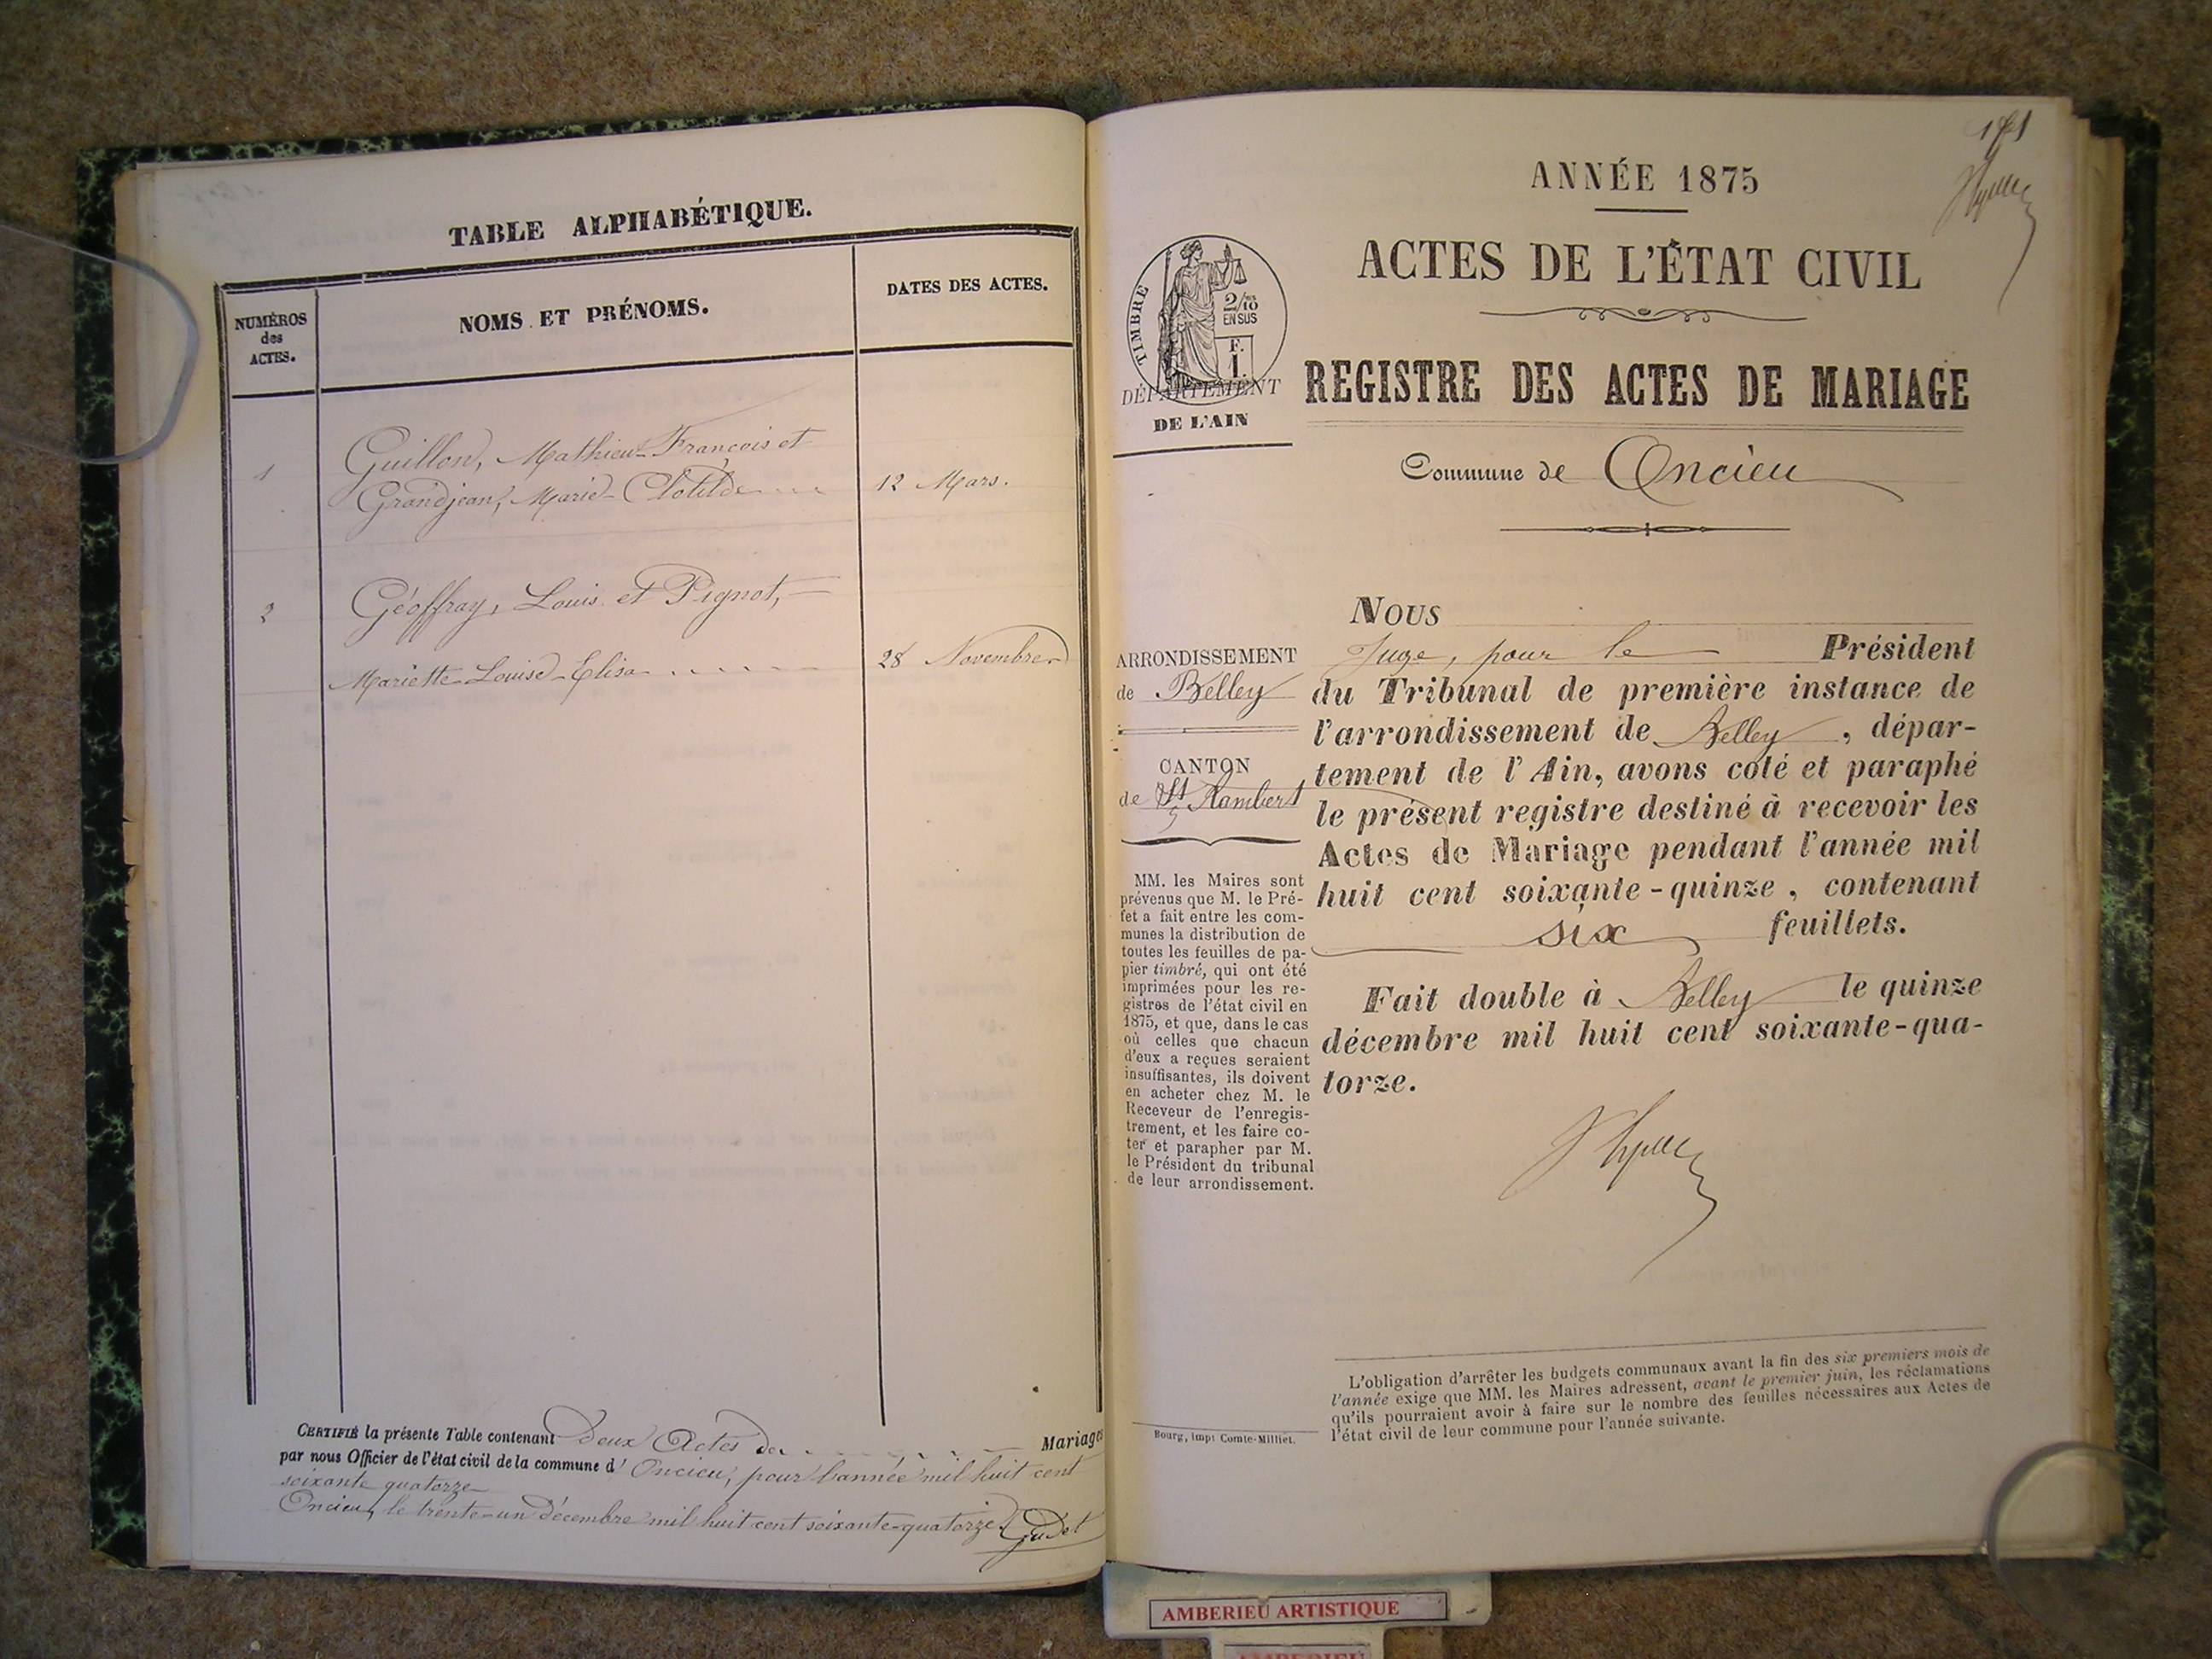 TABLE ALPHABÉTIQUE.
NUMÉROS
des
ACTES.
NOMS ET PRÉNOMS.
DATES DES ACTES.
1
Guillon, Mathieu-François et
Grandjean, Marie-Clotilde
12 Mars.
2
Géoffray, Louis et Pignot,
Mariette-Louise-Elisa
28 Novembre
CERTIFIÉ la présente Table contenant Deux Actes de Mariages
par nous Officier de l'état civil de la commune d' Oncieu, pour l'année mil huit cent
soixante quatorze
Oncieu, le trente-un décembre mil huit cent soixante-quatorze. Gudet
ANNÉE 1875
ACTES DE L'ÉTAT CIVIL
TIMBRE
2/10
EN SUS
F.
1.
DÉPARTEMENT
DE L'AIN
REGISTRE DES ACTES DE MARIAGE
Commune de Oncieu
ARRONDISSEMENT
de Belley
CANTON
de St Rambert
MM. les Maires sont
prévenus que M. le Pré-
fet a fait entre les com-
munes la distribution de
toutes les feuilles de pa-
pier timbré, qui ont été
imprimées pour les re-
gistres de l'état civil en
1875, et que, dans le cas
où celles que chacun
d'eux a reçues seraient
insuffisantes, ils doivent
en acheter chez M. le
Receveur de l'enregis-
trement, et les faire co-
ter et parapher par M.
le Président du tribunal
de leur arrondissement.
Nous
Juge, pour le Président
du Tribunal de première instance de
l'arrondissement de Belley, dépar-
tement de l'Ain, avons coté et paraphé
le présent registre destiné à recevoir les
Actes de Mariage pendant l'année mil
huit cent soixante-quinze, contenant
six feuillets.
Fait double à Belley le quinze
décembre mil huit cent soixante-qua-
torze.
L'obligation d'arrêter les budgets communaux avant la fin des six premiers mois de
l'année exige que MM. les Maires adressent, avant le premier juin, les réclamations
qu'ils pourraient avoir à faire sur le nombre des feuilles nécessaires aux Actes de
l'état civil de leur commune pour l'année suivante.
Bourg, imp: Comte-Milliet.
AMBERIEU ARTISTIQUE
AMBERIEU